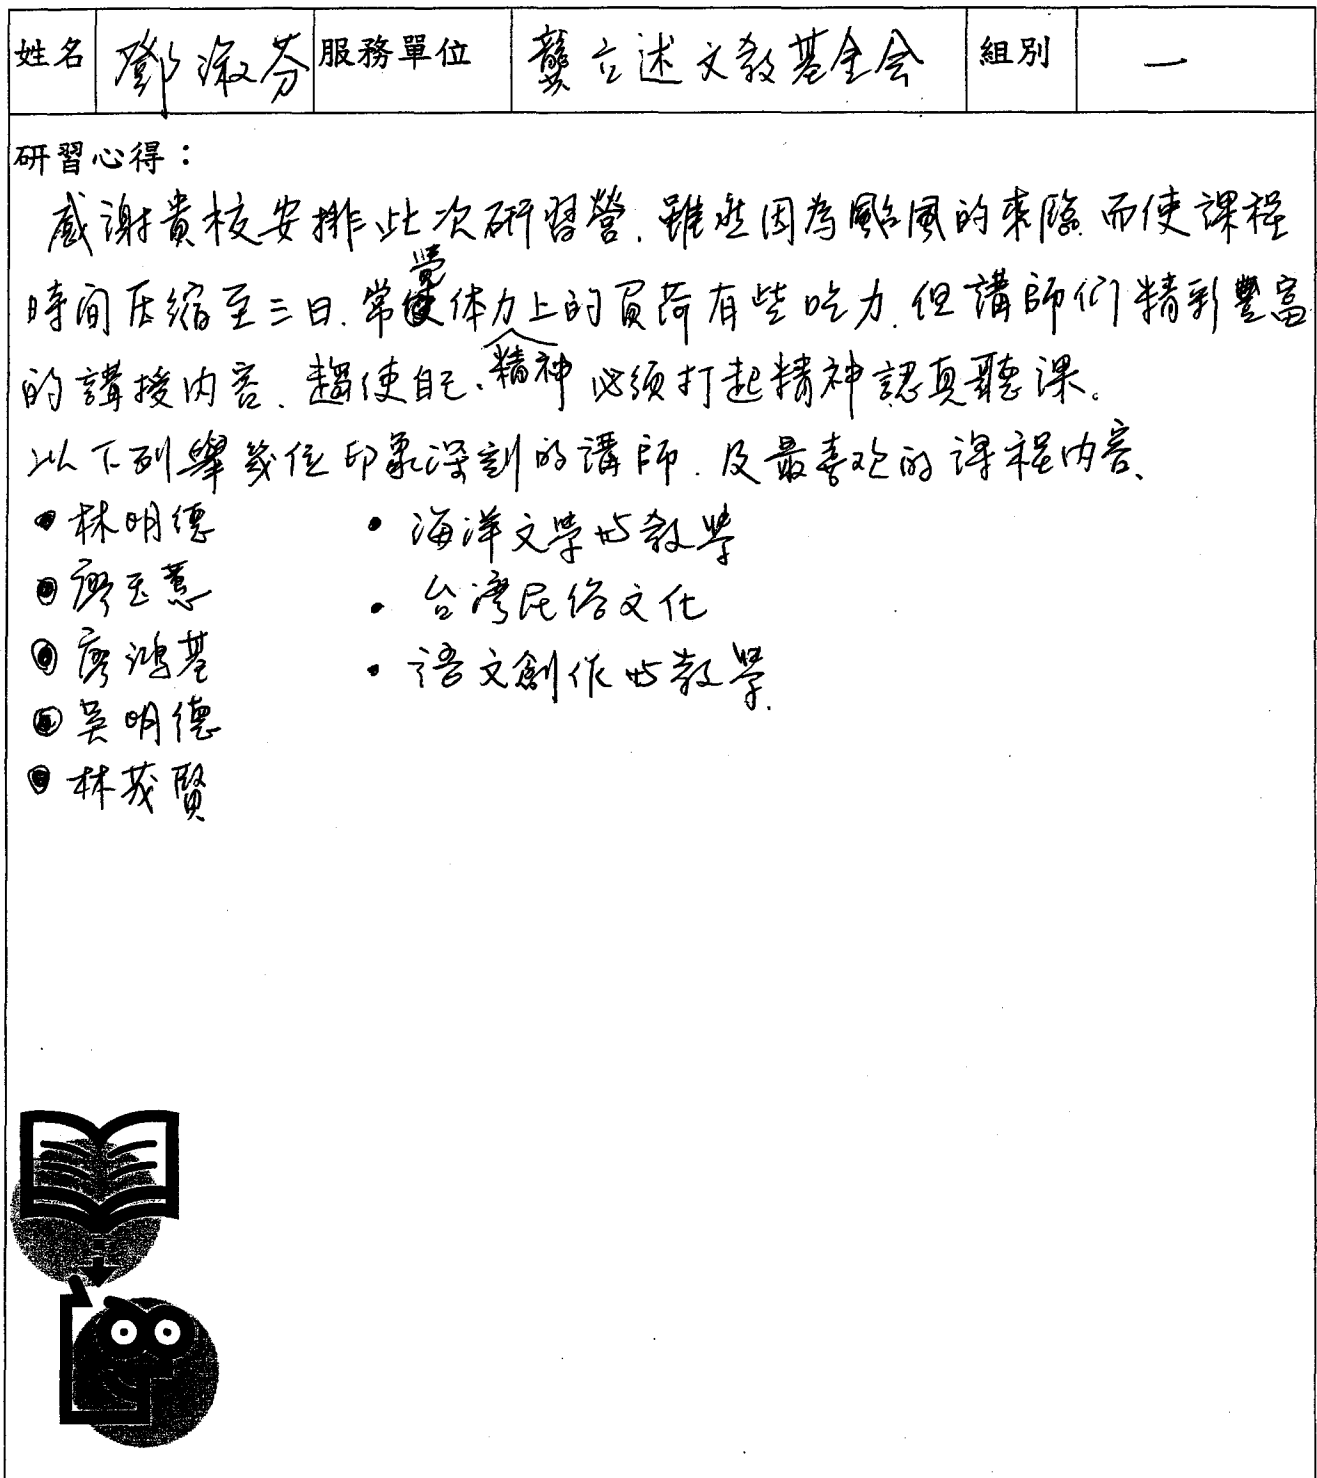 姓名 鄧淑芬 服務單位 龔立述文教基金会 組別 一
研習心得：
感謝貴校安排此次研習營.雖然因為颱風的來臨.而使課程
時间压縮至三日.常覺体力上的負荷有些吃力.但講師们精彩豐富
的講授内容.趨使自己、精神必須打起精神認真聽課。
以下列舉幾位印象深刻的講師.及最喜欢的課程内容、
• 林明德 • 海洋文學与教學
• 廖玉蕙 • 台灣民俗文化
• 廖鴻基 • 語文創作与教學.
• 吳明德
• 林茂賢